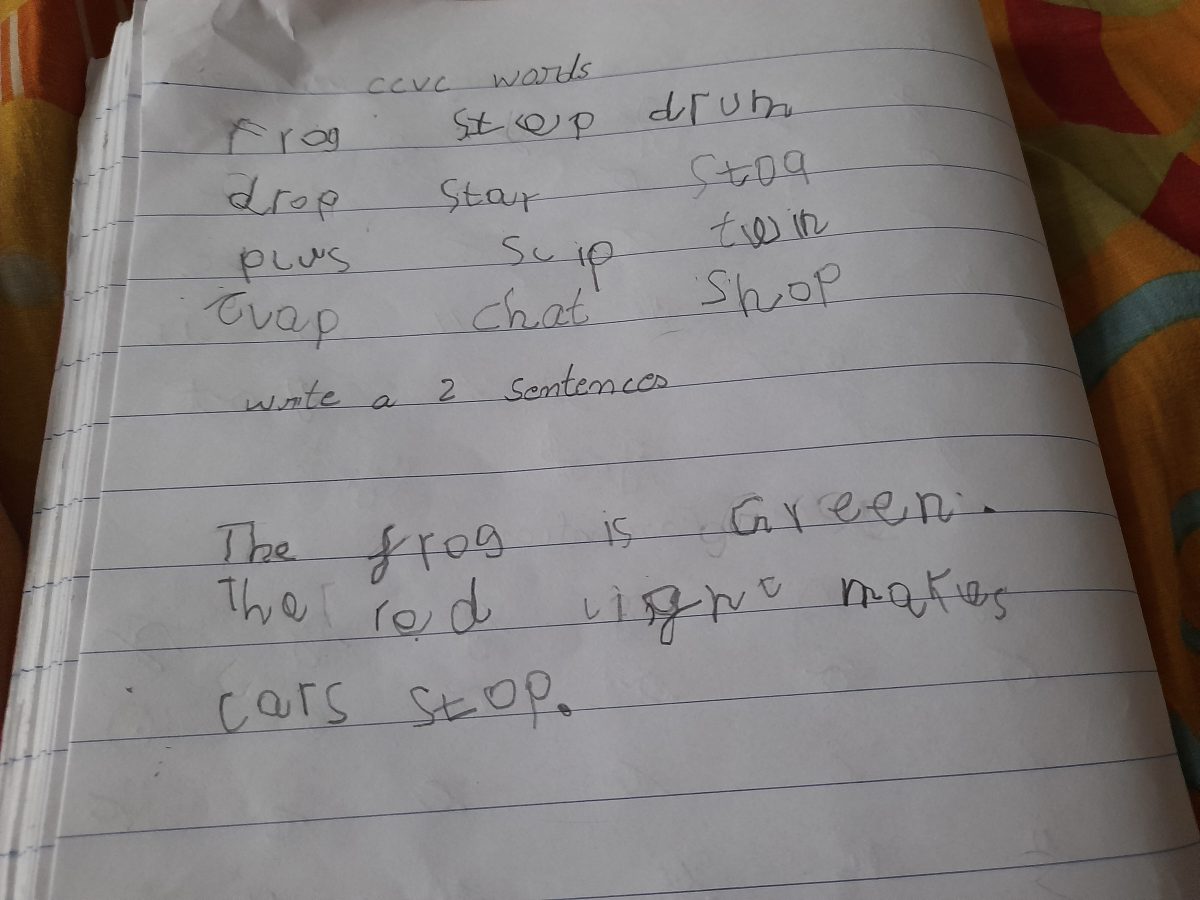 ccvc words
Frog stop drum
drop star stog
plus scip twin
Trap chat shop
write a 2 sentences
The frog is Green.
The red light makes
cars stop.